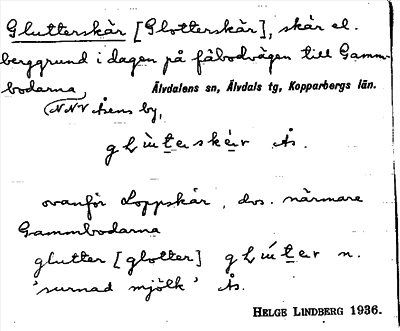 Glutterskär [Glotterskär], skär el.
berggrund i dagen på fäbodvägen till Gamm-
bodarna Älvdalens sn, Älvdals tg, Kopparbergs län.
NNV Åsens by,
Ås.
ovanför Loppskär, dvs. närmare
Gammbodarna
glutter [glotter] n.
'surnad mjölk' Ås.
HELGE LINDBERG 1936.